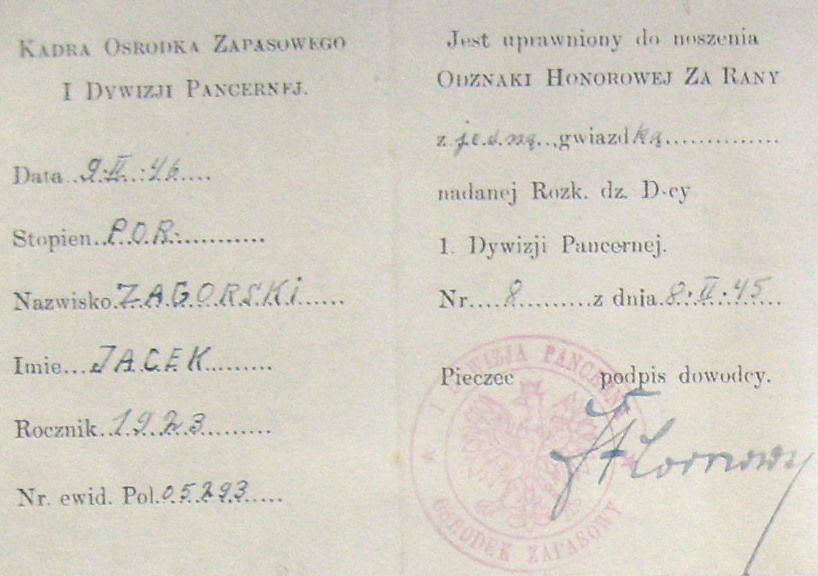 KADRA OSRODKA ZAPASOWEGO
I DYWIZJI PANCERNEJ.
Data..9.II.46....
Stopien..POR...........
Nazwisko.ZAGORSKI......
Imie....JACEK.........
Rocznik..1923.........
Nr. ewid. Pol.05293.....
Jest uprawniony do noszenia
ODZNAKI HONOROWEJ ZA RANY
z jedną...gwiazdką...............
nadanej Rozk. dz. D-cy
1. Dywizji Pancernej.
Nr....8.........z dnia.8.II.45...
Pieczec podpis dowodcy.
I DYWIZJA PANCERNA
OŚRODEK ZAPASOWY